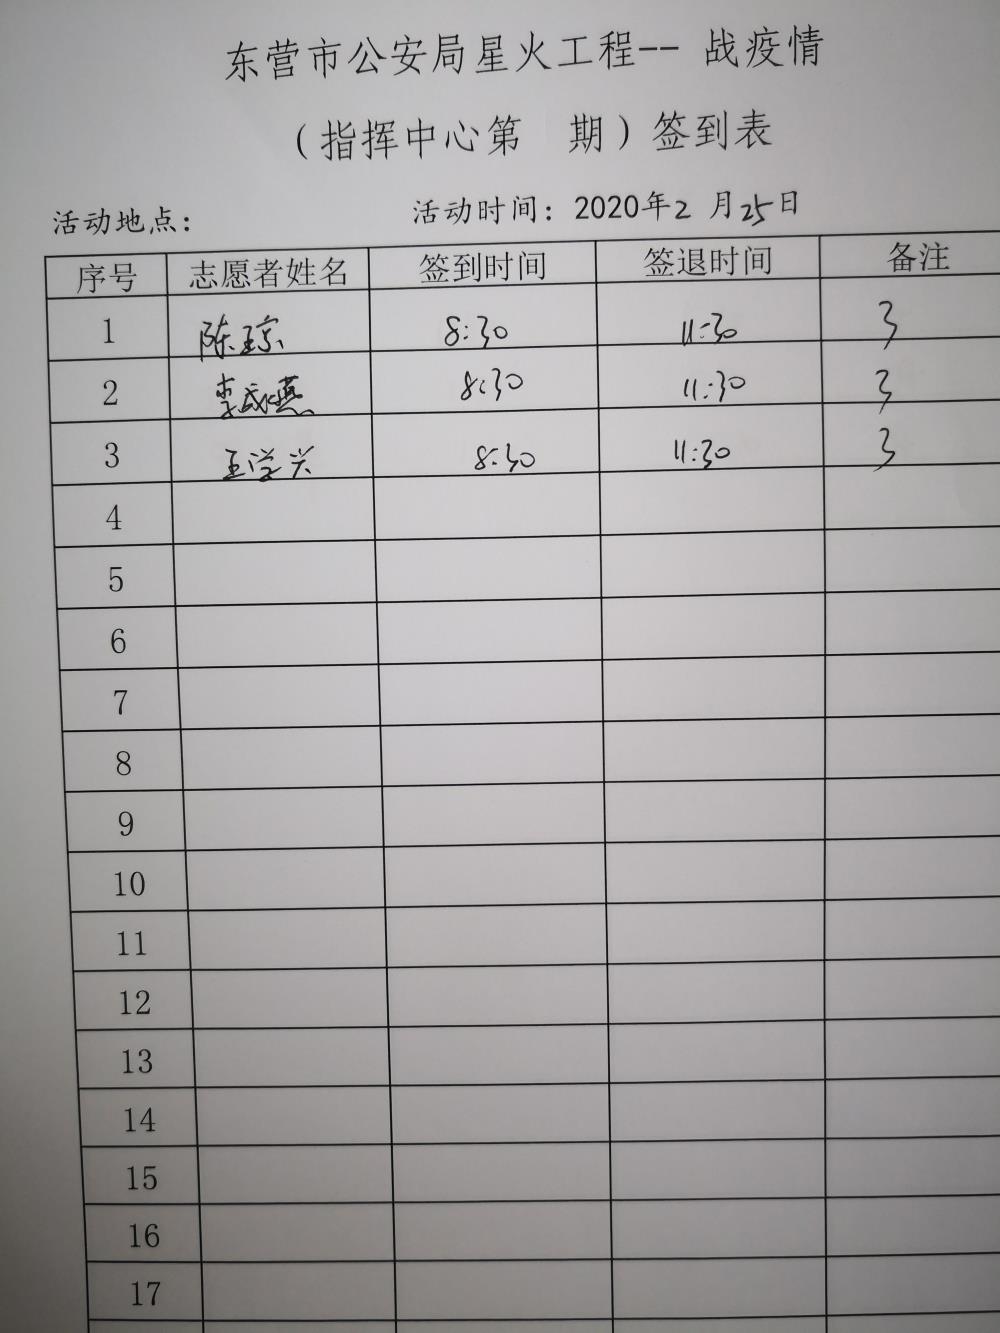 东营市公安局星火工程-- 战疫情
（指挥中心第 期）签到表
活动地点： 活动时间：2020年2 月25日
序号 志愿者姓名 签到时间 签退时间 备注
1 陈琼 8:30 11:30 3
2 李 燕 8:30 11:30 3
3 王学兴 8:30 11:30 3
4
5
6
7
8
9
10
11
12
13
14
15
16
17